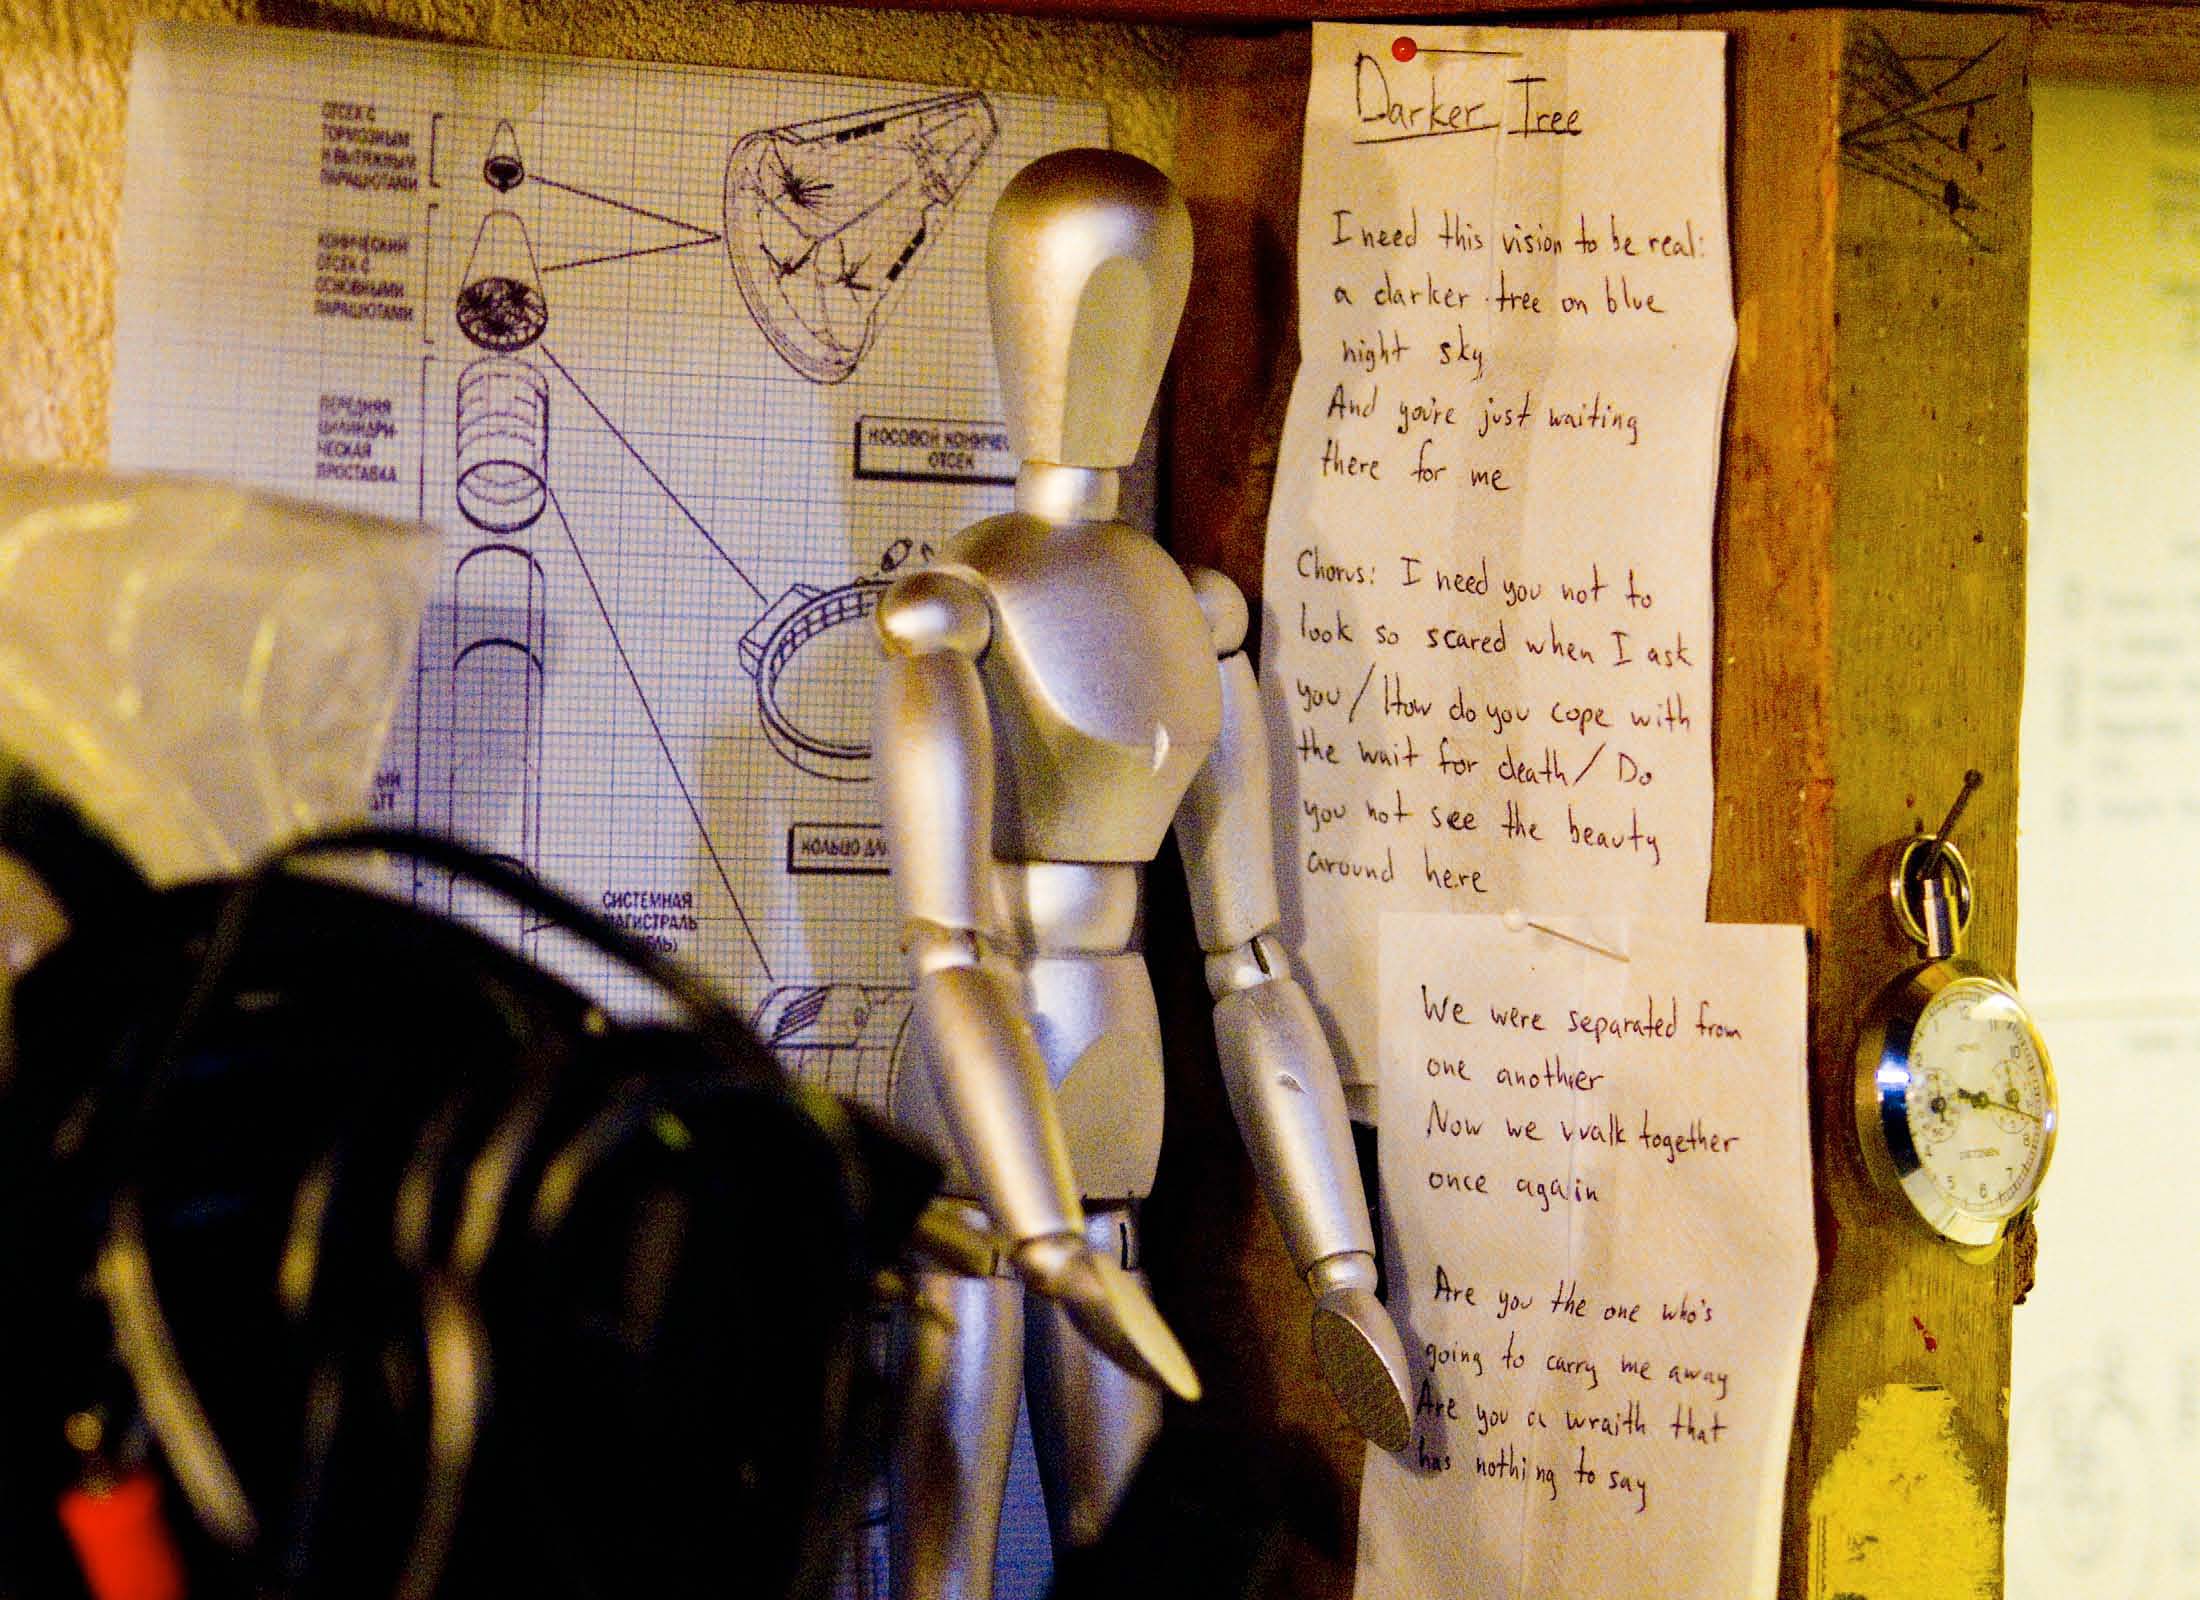 ОТСЕК С
ТОРМОЗНЫМ
И ВЫТЯЖНЫМ
ПАРАШЮТАМИ
КОНИЧЕСКИЙ
ОТСЕК С
ОСНОВНЫМИ
ПАРАШЮТАМИ
ПЕРЕДНЯЯ
ЦИЛИНДРИ-
ЧЕСКАЯ
ПРОСТАВКА
НОСОВОЙ
ОТСЕК
КОЛЬЦО
СИСТЕМНАЯ
МАГИСТРАЛЬ
Darker Tree
I need this vision to be real:
a darker tree on blue
night sky
And you're just waiting
there for me
Chorus: I need you not to
look so scared when I ask
you / How do you cope with
the wait for death / Do
you not see the beauty
around here
We were separated from
one another
Now we walk together
once again
Are you the one who's
going to carry me away
Are you a wraith that
has nothing to say